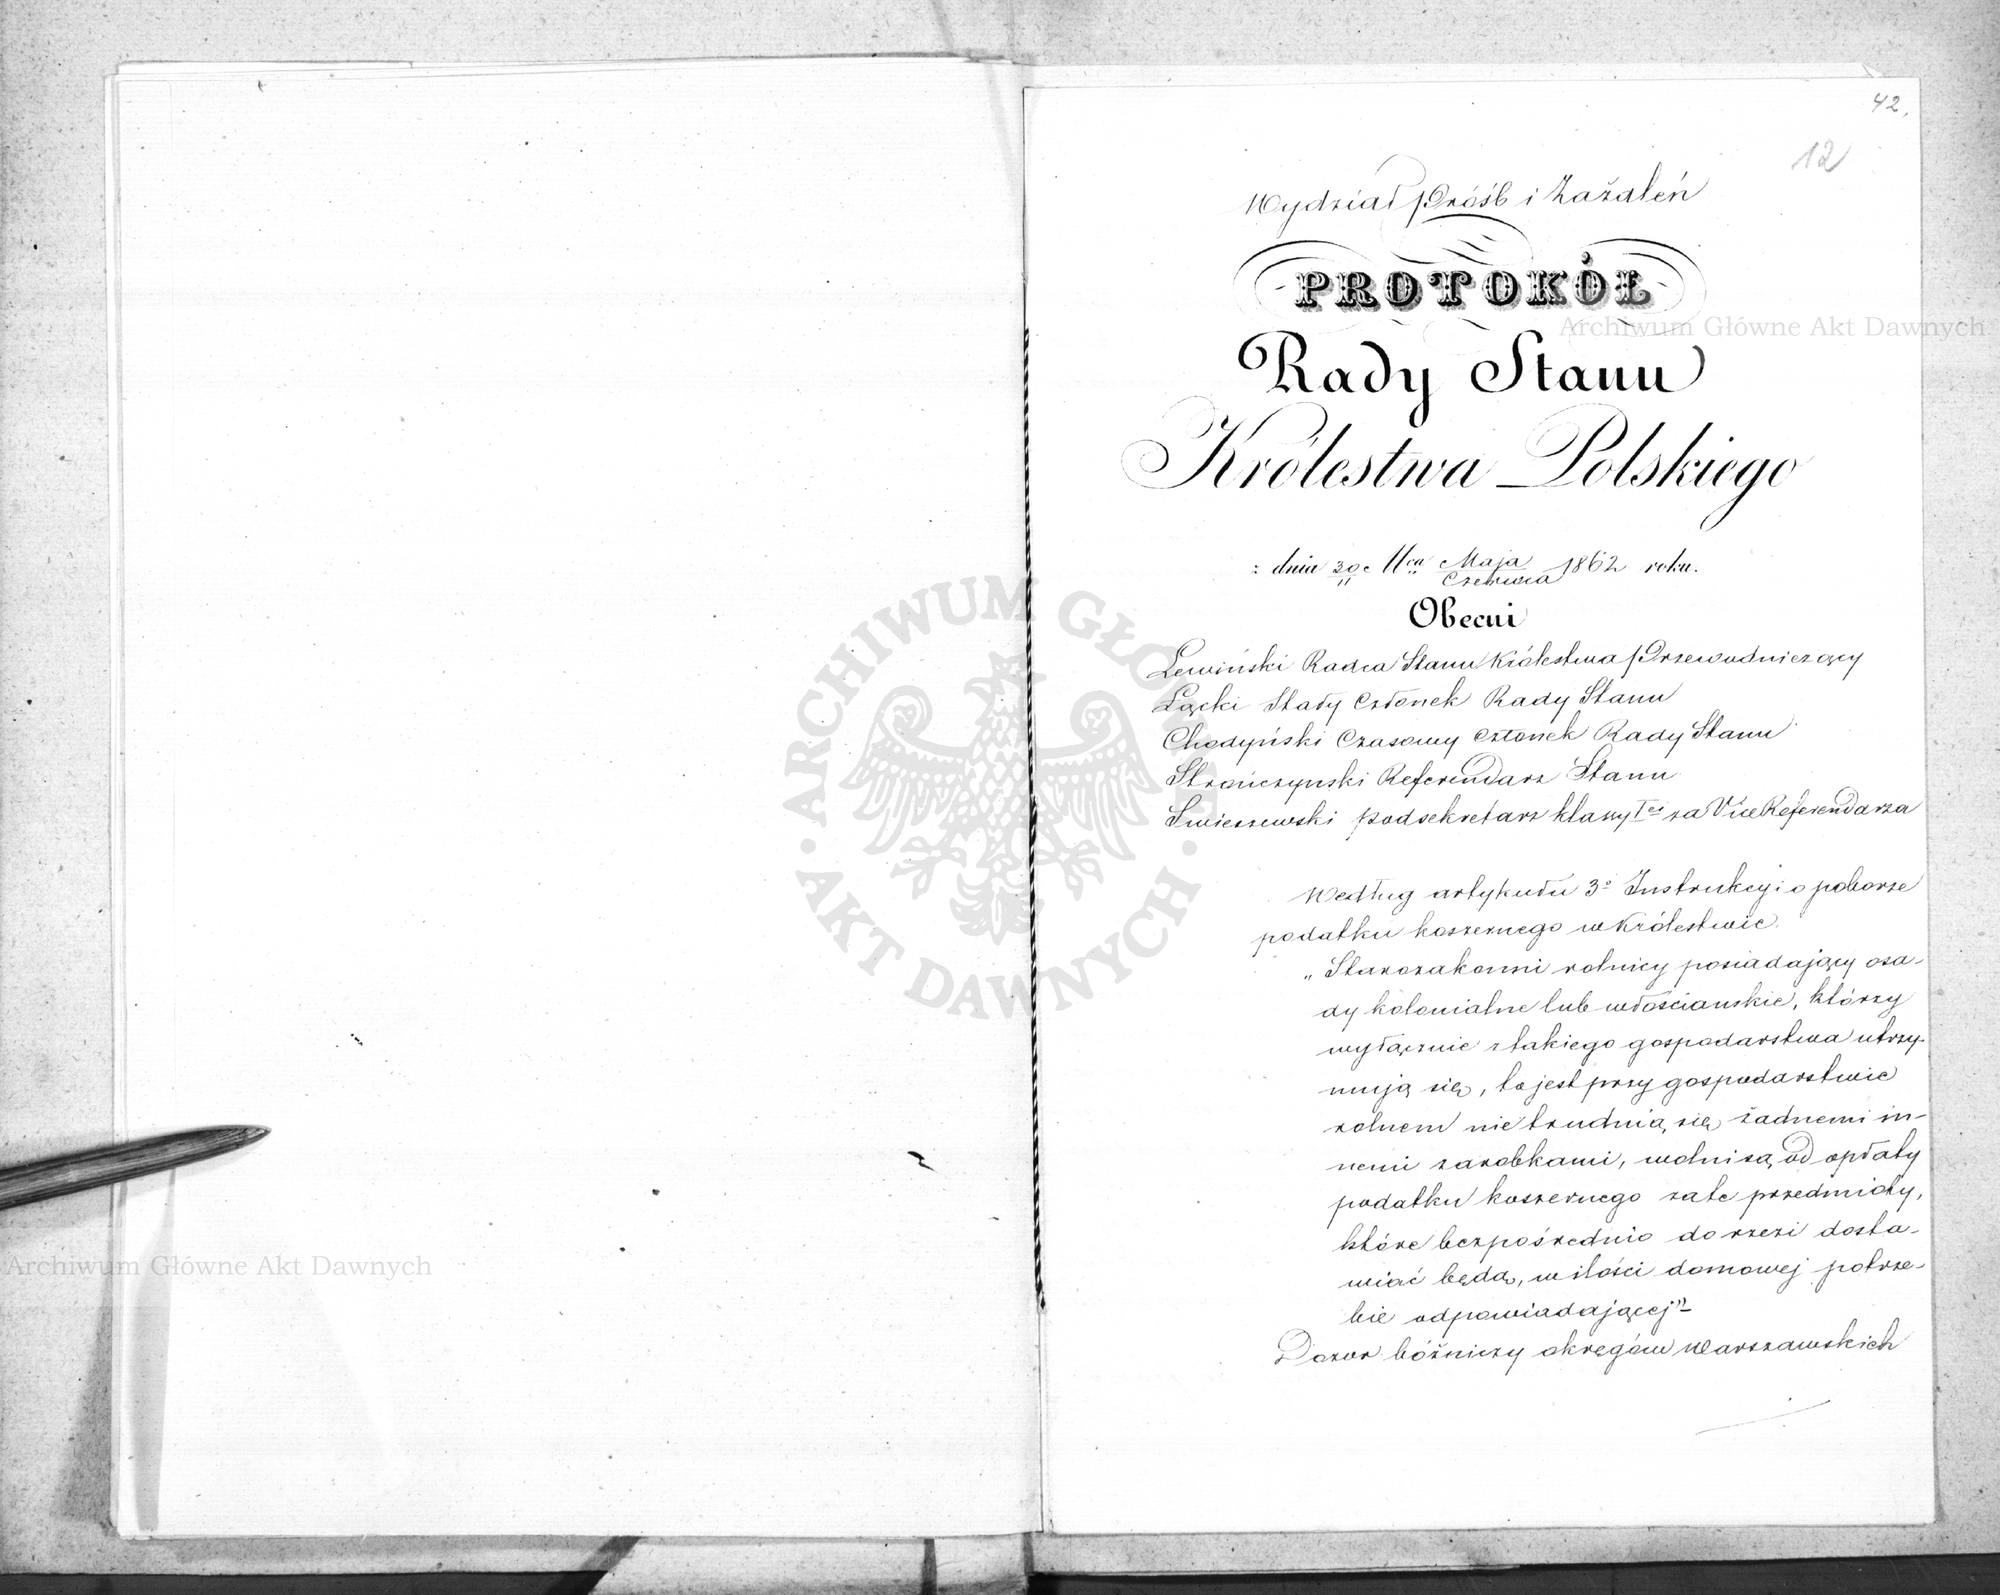 42.
12
Wydział Próśb i Zażaleń
PROTOKÓŁ
Rady Stanu
Królestwa Polskiego
z dnia 30/11 Mca Maja/Czerwca 1862 roku.
Obecni
Lewiński Radca Stanu Królestwa Przewodniczący
Łącki Stały Członek Rady Stanu
Chodyński Czasowy Członek Rady Stanu
Strończynski Referendarz Stanu
Smieszewski podsekretarz klassy Iej za Vice Referendarza
Według artykułu 3o Instrukcyi o poborze
podatku koszernego w Królestwie.
„Starozakonni rolnicy posiadający osa-
dy kolonialne lub włościanskie, którzy
wyłącznie z takiego gospodarstwa utrzy-
mują się, to jest przy gospodarstwie
rolnem nie trudnią się żadnemi in-
nemi zarobkami, wolni są od opłaty
podatku koszernego za te przedmioty,
które bezpośrednio do rzezi dosta-
wiać będą, w ilości domowej potrze-
bie odpowiadającej"-
Dozor bóżniczy okręgów Warszawskich
Archiwum Główne Akt Dawnych
ARCHIWUM GŁÓWNE AKT DAWNYCH
Archiwum Główne Akt Dawnych